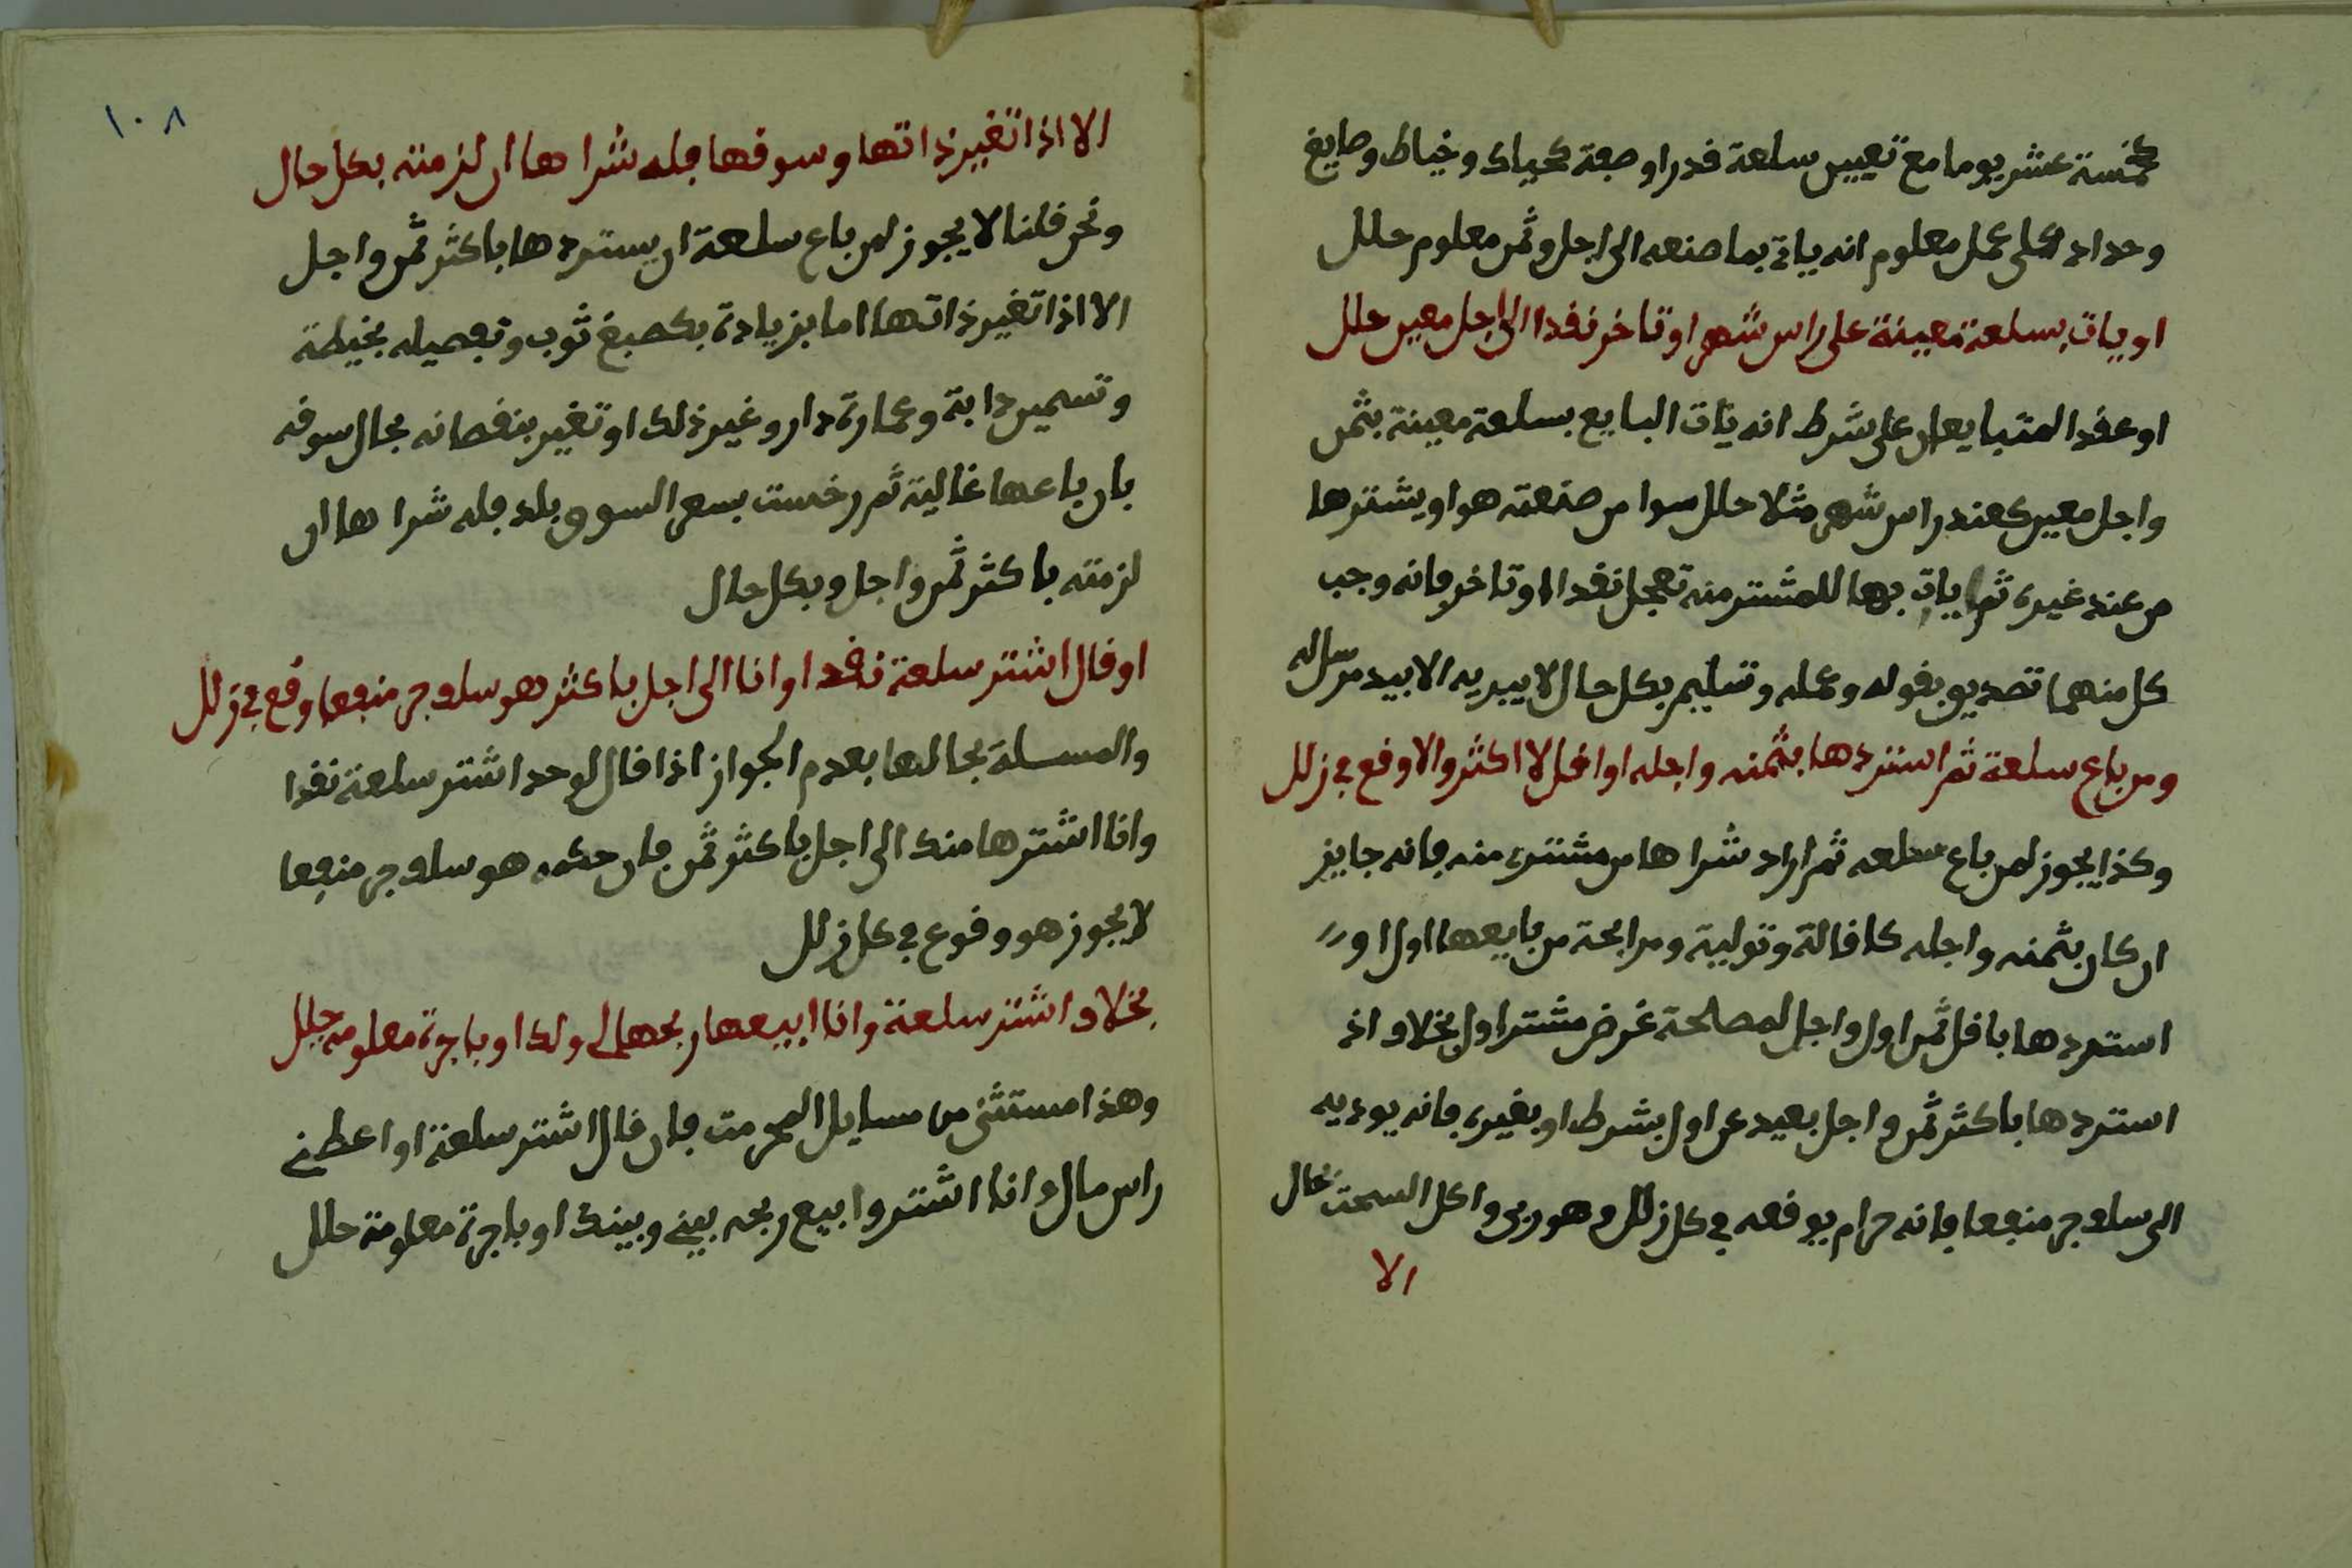 كخمسة عشر يوما مع تعيين سلعة قدرا وصفة كحياك وخياط وصايغ
وحداد على عمل معلوم انه ياتي بما صنعه الى اجل وثمن معلوم حلل
او يات بسلعة معينة على راس شهر او تاخر نقدا الى اجل معين حلل
او عقد المتبايعان على شرط انه يات البايع بسلعة معينة بثمن
واجل معين كعند راس شهر مثلا حلل سوا من صنعته هو او يشترها
من عند غيره ثم يات بها للمشتر منه تعجل نقدا او تاخر فانه وجب
كل منهما تصديق بقوله وعمله وتسليم بكل حال لا يبديه الا بيد مرساله
ومن باع سلعة ثم استردها بثمنه واجله او اقل لا اكثر والا وقع في زلل
وكذا يجوز لمن باع سلعه ثم اراد شراها من مشتره منه فانه جايز
ان كان بثمنه واجله كاقالة وتولية ومرابحة من بايعها اول او
استردها باقل ثمن اول واجل لمصلحة غرض مشتر اول بخلاف اذ
استردها باكثر ثمن واجل بعيد عن اول بشرط او بغيره فانه يوديه
الى سلف جر منفعا فانه حرام يوقعه في كل زلل وهو ربى واكل السحت بحال
الا
١٠٨
الا اذا تغير ذاتها وسوقها فله شراها ان لزمته بكل حال
ونحن قلنا لا يجوز لمن باع سلعة ان يستردها باكثر ثمن واجل
الا اذا تغير ذاتها اما بزيادة بكصبغ ثوب وتفصيله بخيطة
وتسمين دابة وعمارة دار وغير ذلك او تغير بنقصانه بحال سوقه
بان باعها غالية ثم رخست بسعر السوق بلد فله شراها ان
لزمته باكثر ثمن واجل وبكل حال
او قال اشتر سلعة نقدا وانا الى اجل باكثر هو سلف جر منفعا وقع في زلل
والمسسلة بحالها بعدم الجواز اذا قال لوحد اشتر سلعة نقدا
وانا اشترها منك الى اجل باكثر ثمن فان حكمه هو سلف جر منفعا
لا يجوز هو وقوع في كل زلل
بخلاف اشتر سلعة وانا ابيعها ربحها لي ولك او باجرة معلومه حلل
وهذا مستثنى من مسايل المحرمت فان قال اشتر سلعة او اعطني
راس مال وانا اشتر وابيع ربحه بيني وبينك او باجرة معلومة حلل